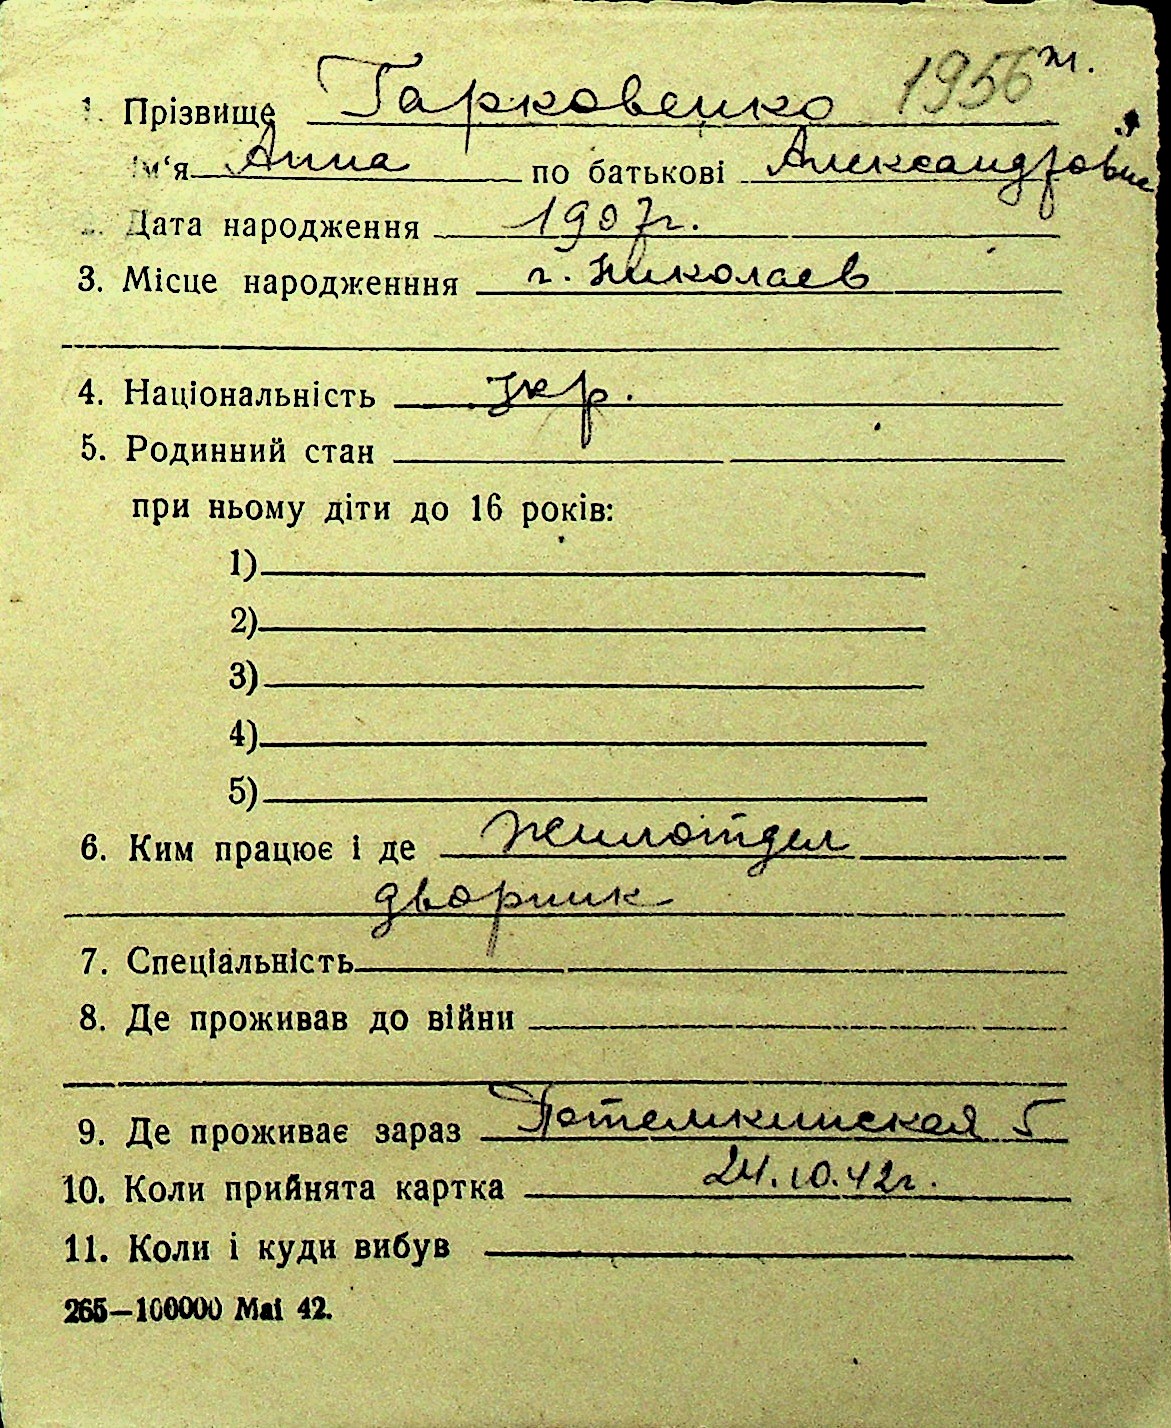 1956 ж.
1. Прізвище Гарковенко
Ім'я Анна по батькові Александровна
2. Дата народження 1907г.
3. Місце народженння г. Николаев
4. Національність укр.
5. Родинний стан
при ньому діти до 16 років:
1)
2)
3)
4)
5)
6. Ким працює і де Жилотдел
дворник
7. Спеціальність
8. Де проживав до війни
9. Де проживає зараз Потемкинская 5
10. Коли прийнята картка 24.10.42г.
11. Коли і куди вибув
265—100000 Маі 42.